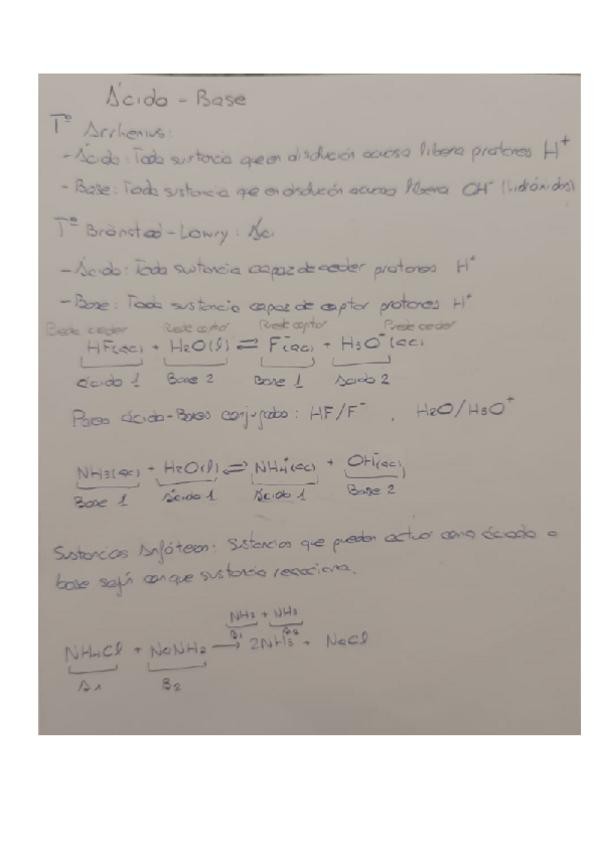 Ácido - Base
Tª Arrhenius:
- Ácido: Toda sustancia que en disolución acuosa libera protones H⁺
- Base: Toda sustancia que en disolución acuosa libera OH⁻ (hidróxidos)
Tª Brönsted-Lowry: Ác
- Ácido: Toda sustancia capaz de ceder protones H⁺
- Base: Toda sustancia capaz de captar protones H⁺
Puede ceder Puede captar Puede captar Puede ceder
HF(ac) + H2O(l) ⇌ F⁻(ac) + H3O⁻(ac)
ácido 1 Base 2 Base 1 Ácido 2
Pares ácido-Bases conjugados: HF/F⁻ , H2O/H3O⁺
NH3(ac) + H2O(l) ⇌ NH4⁺(ac) + OH⁻(ac)
Base 1 Ácido 1 Ácido 1 Base 2
Sustancias Anfóteras: Sustancias que pueden actuar como ácido o
base según con que sustancia reacciona.
NH3 + NH3
B1 B2
NH4Cl + NaNH2 → 2NH3 + NaCl
A1 B2